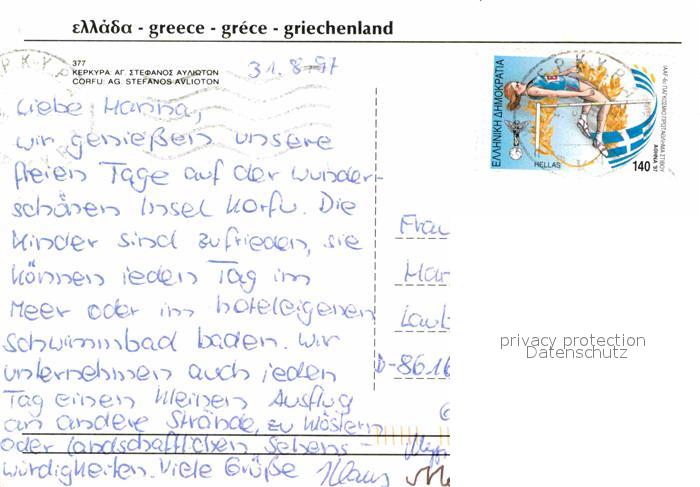 ελλάδα - greece - gréce - griechenland
377
ΚΕΡΚΥΡΑ: ΑΓ. ΣΤΕΦΑΝΟΣ ΑΥΛΙΩΤΩΝ
CORFU: AG. STEFANOS AVLIOTON
31.8.97
Liebe Hanna,
wir genießen unsere
freien Tage auf der wunder-
schönen Insel Korfu. Die
Kinder sind zufrieden, sie
können jeden Tag im
Meer oder im hoteleigenen
Schwimmbad baden. Wir
unternehmen auch jeden
Tag einen kleinen Ausflug
an andere Strände, zu Klöstern
oder landschaftlichen Sehens-
würdigkeiten. Viele Grüße Klaus
Frau
D-8616
ΕΛΛΗΝΙΚΗ ΔΗΜΟΚΡΑΤΙΑ
HELLAS
140
ΑΘΗΝΑ 97
privacy protection
Datenschutz